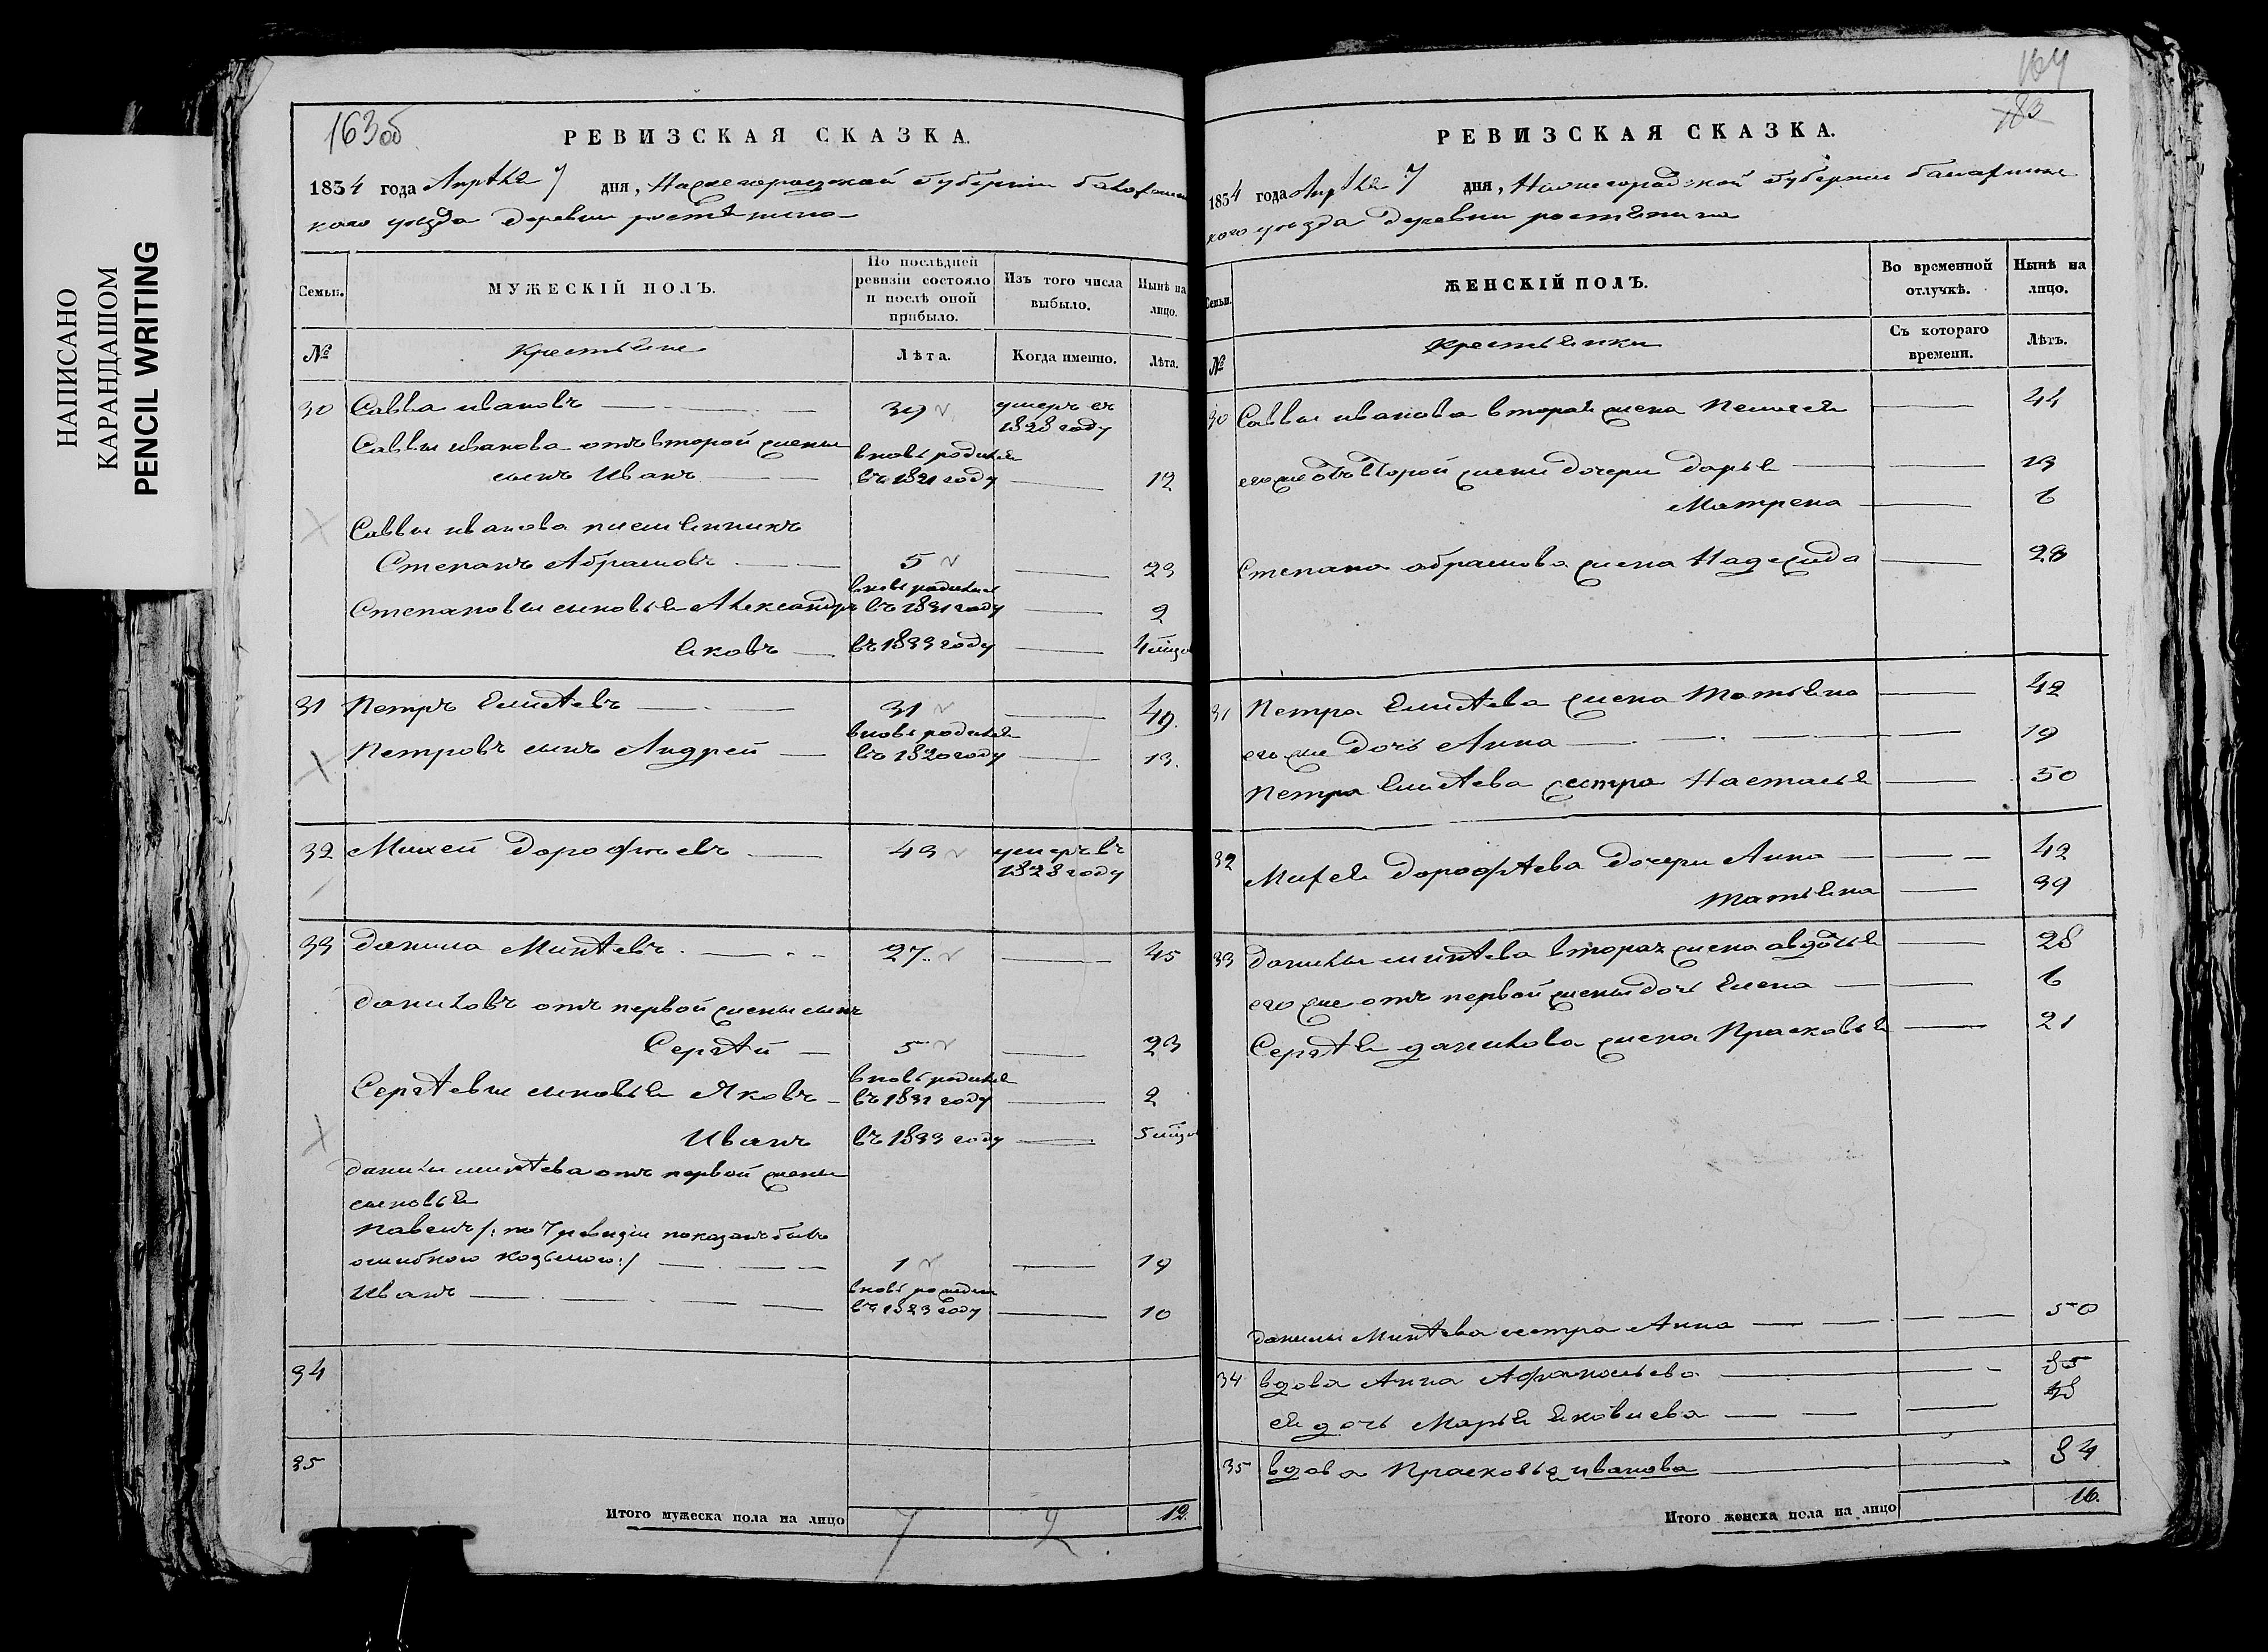 НАПИСАНО
КАРАНДАШОМ
PENCIL WRITING
163об
РЕВИЗСКАЯ СКАЗКА.
1834 года Апрѣля 7 дня, Нижегородской губерніи
кого уезда деревни
Семьи.
МУЖЕСКІЙ ПОЛЪ.
По послѣдней ревизіи состояло и послѣ оной прибыло.
Изъ того числа выбыло.
Нынѣ на лицо.
№
Крестьяне
Лѣта.
Когда именно.
Лѣта.
30 Савва ивановъ 39 умеръ въ 1828 году
Саввы иванова отъ второй жены
сынъ Иванъ вновь родился въ 1821 году 12
Саввы иванова племянникъ
Степанъ Абрамовъ 5 23
Степановы сыновья Александръ вновь родился въ 1831 году 2
Яковъ въ 1833 году 4
31 Петръ Елисѣевъ 31 49.
Петровъ сынъ Андрей вновь родился въ 1820 году 13.
32 Михей Дорофѣевъ 43 умеръ въ 1828 году
33 Данила Микѣевъ 27 45
Даниловъ отъ первой жены сынъ
Сергѣй 5 23
Сергѣевы сыновья Яковъ вновь родился въ 1831 году 2
Иванъ въ 1833 году 5
Данилы микѣева отъ первой жены
сыновья
Павелъ /: по 7 ревизіи показанъ былъ
ошибкою козьмою :/ 1 19
Иванъ вновь рожденъ въ 1823 году 10
34
35
Итого мужеска пола на лицо 7 2 12.
164
183
РЕВИЗСКАЯ СКАЗКА.
1834 года Апрѣля 7 дня, Нижегородской губерніи
кого уезда деревни
Семьи.
ЖЕНСКІЙ ПОЛЪ.
Во временной отлучкѣ.
Нынѣ на лицо.
№
Крестьянки
Съ котораго времени.
Лѣтъ.
30 Саввы иванова вторая жена Пелагея 44
его же отъ второй жены дочери Дарья 13
Матрена 6
Степана абрамова жена Надежда 28
31 Петра Елисѣева жена Татьяна 42
его же дочь Анна 19
Петра Елисѣева сестра Настасья 50
32 Михея Дорофѣева дочери Анна 42
Татьяна 39
33 Данилы микѣева вторая жена авдотья 28
его же отъ первой жены дочь Елена 6
Сергѣя данилова жена Прасковья 21
Данилы Микѣева сестра Анна 50
34 вдова Анна Афанасьева 85
ея дочь Марья Яковлева
35 вдова Прасковья иванова 84
Итого женска пола на лицо 16.